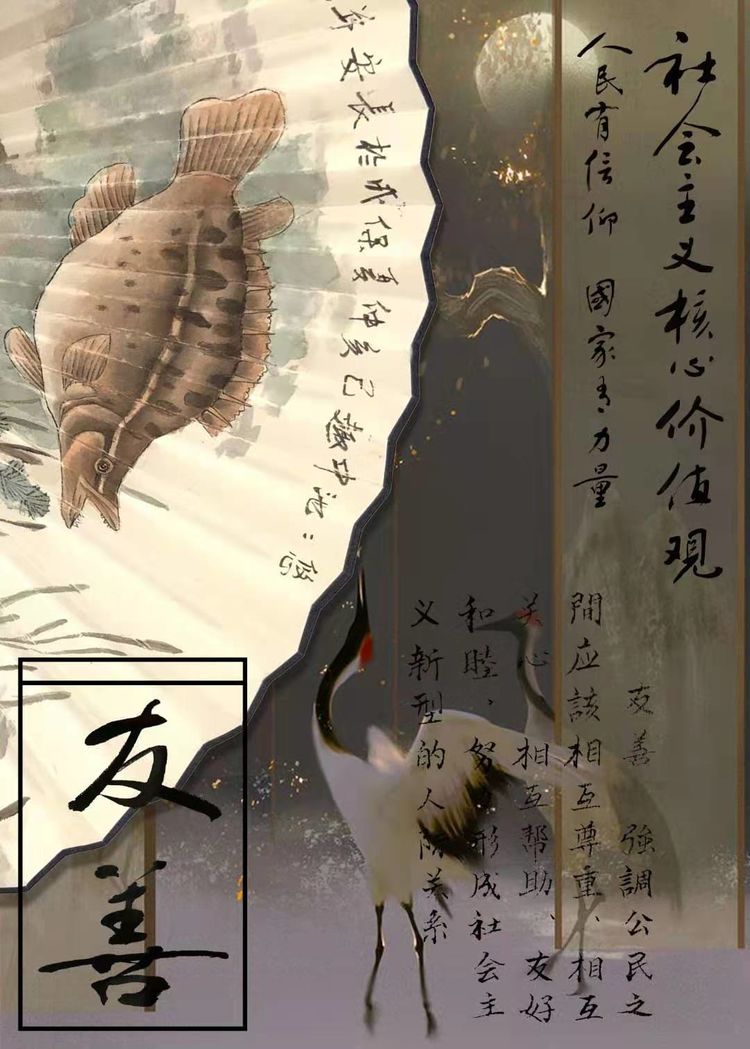 社会主义核心价值观
人民有信仰 國家有力量
友善 強調公民之
間应該相互尊重、相互
关心 相互帮助、友好
和睦，努 形成社会主
义新型的人际关系
安長於
友善